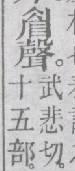 睂聲。
武悲切。
十五部。